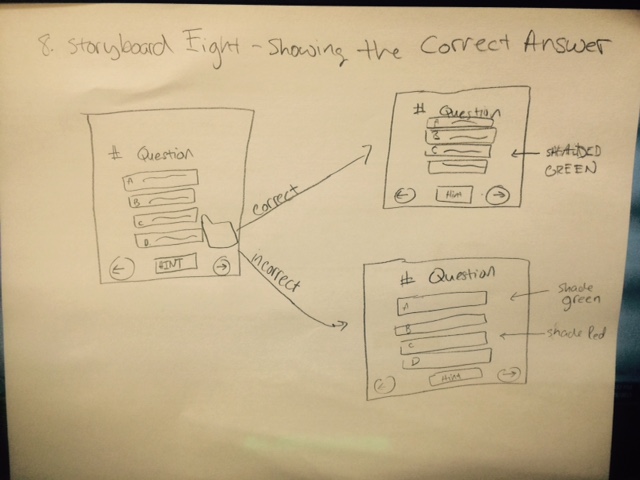 8. Storyboard Eight - Showing the Correct Answer
# Question
A
B
C
D
HINT
correct
incorrect
# Question
A
B
C
Hint
SHADED
GREEN
# Question
A
B
C
D
Hint
shade
green
shade Red